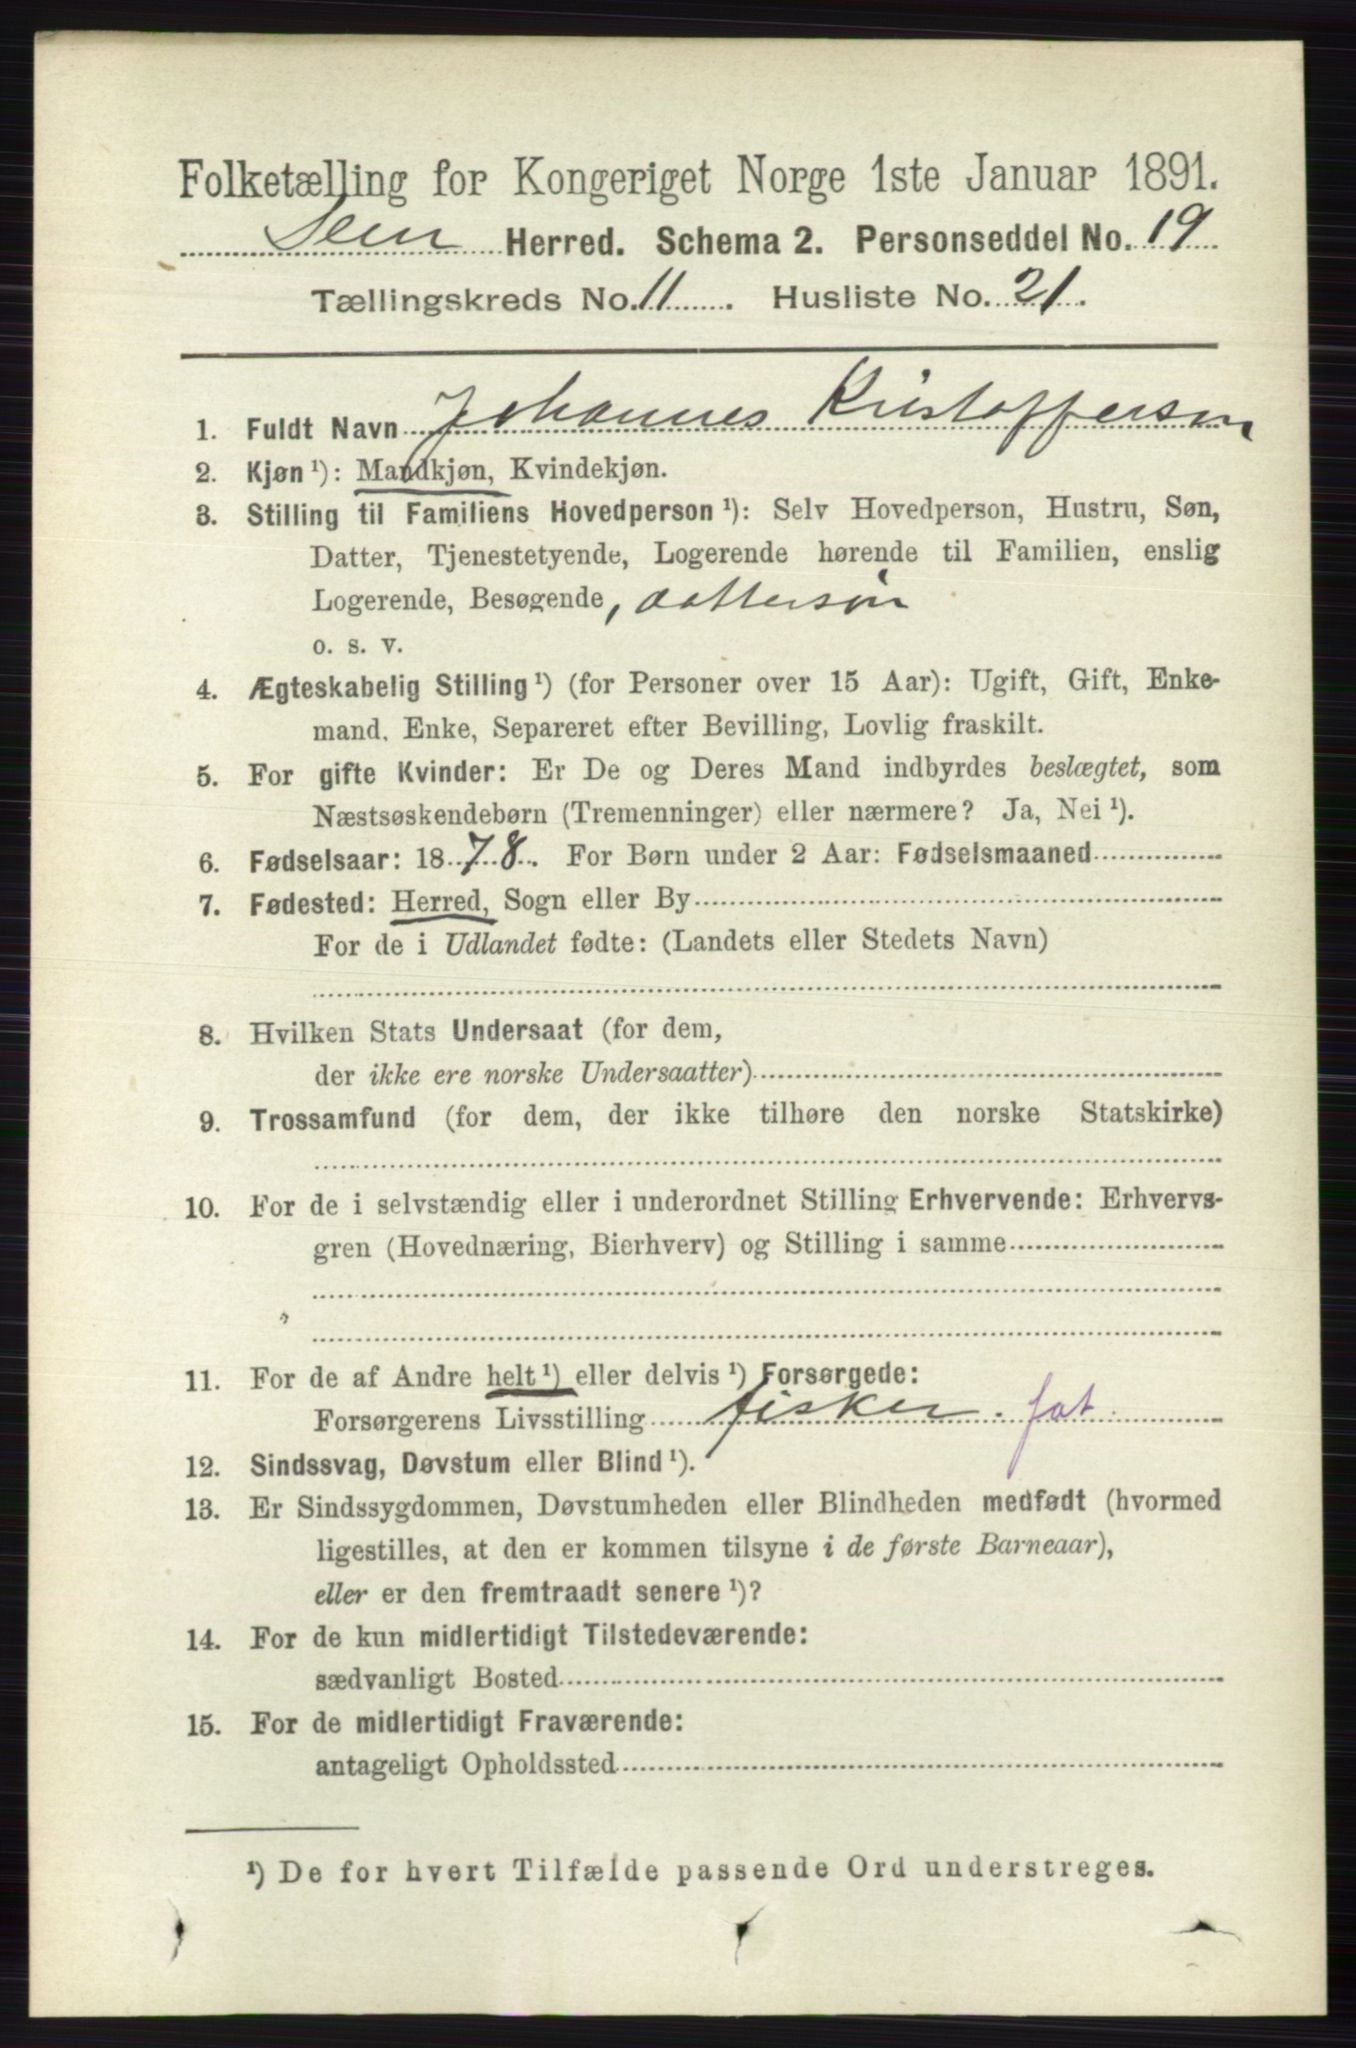 Folketælling for Kongeriget Norge 1ste Januar 1891.
Sem Herred. Schema 2. Personseddel No. 19
Tællingskreds No. 11. Husliste No. 21.
1. Fuldt Navn Johannes Kristoffersen
2. Kjøn ¹): Mandkjøn, Kvindekjøn.
3. Stilling til Familiens Hovedperson ¹): Selv Hovedperson, Hustru, Søn,
Datter, Tjenestetyende, Logerende hørende til Familien, enslig
Logerende, Besøgende, dattersøn
o. s. v.
4. Ægteskabelig Stilling ¹) (for Personer over 15 Aar): Ugift, Gift, Enke-
mand, Enke, Separeret efter Bevilling, Lovlig fraskilt.
5. For gifte Kvinder: Er De og Deres Mand indbyrdes beslægtet, som
Næstsøskendebørn (Tremenninger) eller nærmere? Ja, Nei ¹).
6. Fødselsaar: 1878. For Børn under 2 Aar: Fødselsmaaned
7. Fødested: Herred, Sogn eller By
For de i Udlandet fødte: (Landets eller Stedets Navn)
8. Hvilken Stats Undersaat (for dem,
der ikke ere norske Undersaatter)
9. Trossamfund (for dem, der ikke tilhøre den norske Statskirke)
10. For de i selvstændig eller i underordnet Stilling Erhvervende: Erhvervs-
gren (Hovednæring, Bierhverv) og Stilling i samme
11. For de af Andre helt ¹) eller delvis ¹) Forsørgede:
Forsørgerens Livsstilling fisker. fat.
12. Sindssvag, Døvstum eller Blind ¹).
13. Er Sindssygdommen, Døvstumheden eller Blindheden medfødt (hvormed
ligestilles, at den er kommen tilsyne i de første Barneaar),
eller er den fremtraadt senere ¹)?
14. For de kun midlertidigt Tilstedeværende:
sædvanligt Bosted
15. For de midlertidigt Fraværende:
antageligt Opholdssted
¹) De for hvert Tilfælde passende Ord understreges.